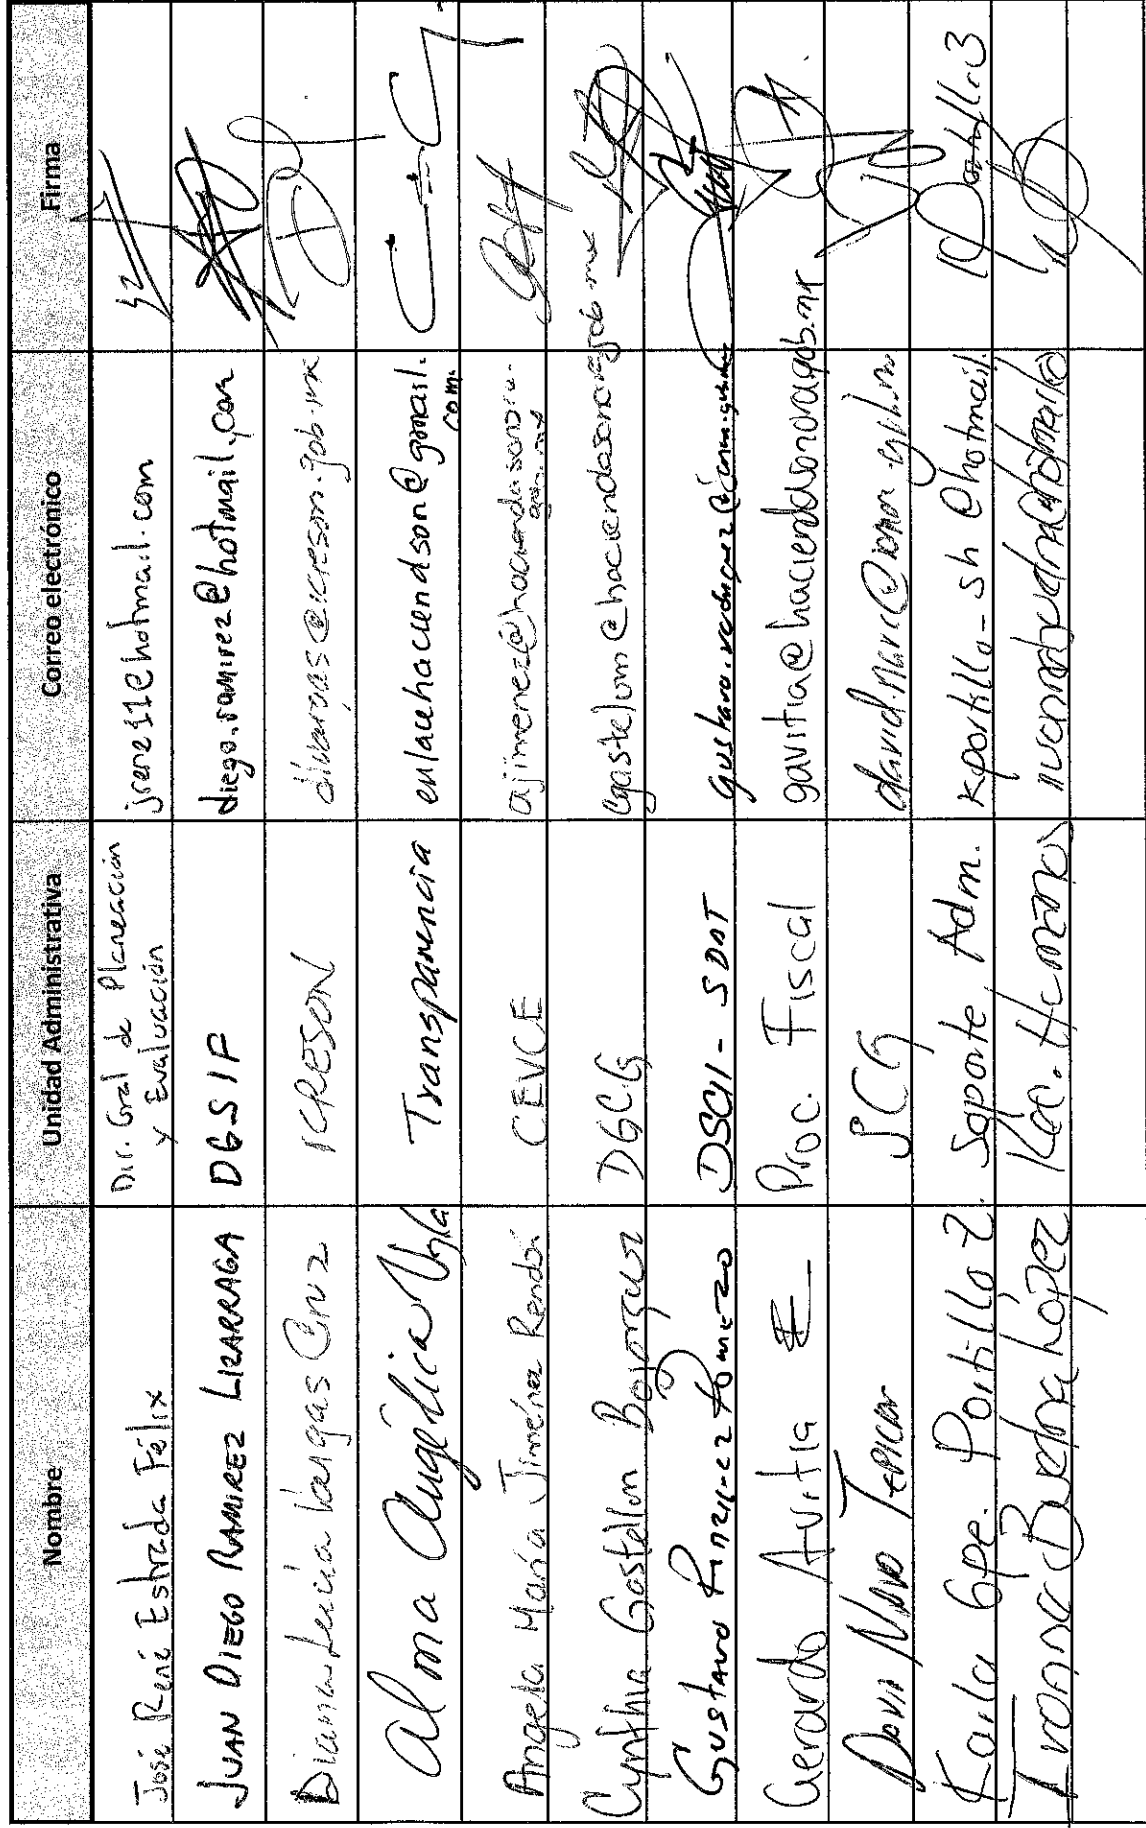 Nombre Unidad Administrativa Correo electrónico Firma
José René Estrada Félix Dir. Gral de Planeación
y Evaluación jrene11@hotmail.com
JUAN DIEGO RAMIREZ LIZARRAGA DGSIF diego.ramirez@hotmail.com
Diana Lucía Vargas Cruz ICRESON dlvargas@icreson.gob.mx
Alma Angélica Transparencia enlacehaciendson@gmail.
com.
Angela María Jiménez Rendón CEVCE ajimenez@haciendasonora.
gob.mx
Cynthia Gastelum Bojorquez DGCG cgastelum@haciendasonora.gob.mx
Gustavo DSCyI - SDAT
Gerardo Avitia E Proc. Fiscal gavitia@haciendasonora.gob.mx
David Navo SCG
Karla Gpe. Portillo Z. Soporte Adm. kportillo_sh@hotmail.
Ivonne Buelna López Rec. Humanos